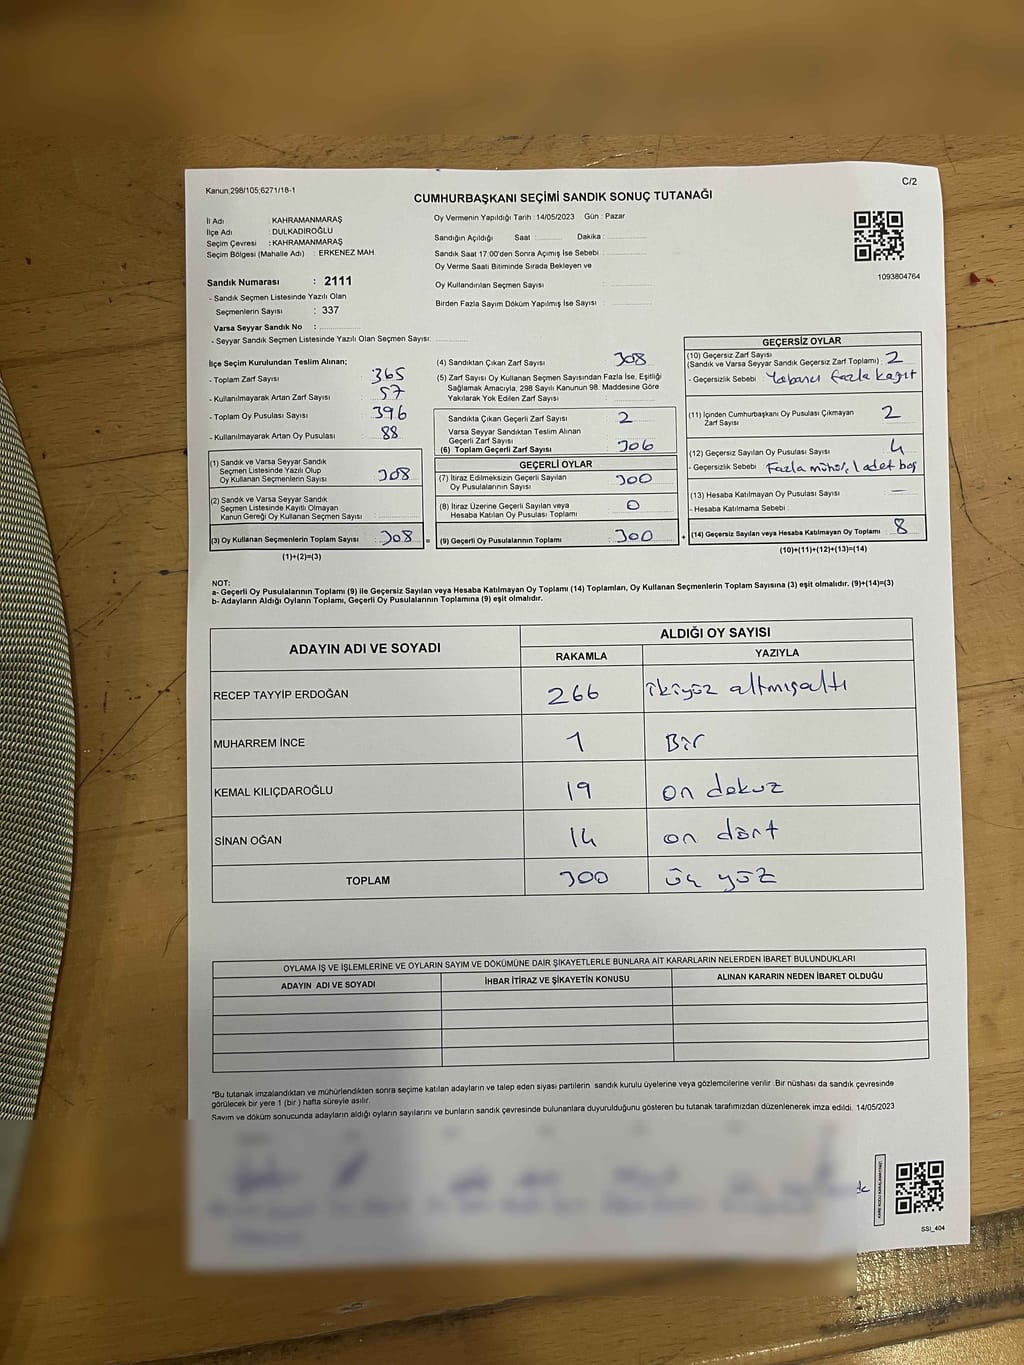 Kanun;298/105,6271/18-1
C/2
CUMHURBAŞKANI SEÇİMİ SANDIK SONUÇ TUTANAĞI
İl Adı : KAHRAMANMARAŞ
İlçe Adı : DULKADİROĞLU
Seçim Çevresi : KAHRAMANMARAŞ
Seçim Bölgesi (Mahalle Adı) : ERKENEZ MAH.
Sandık Numarası : 2111
- Sandık Seçmen Listesinde Yazılı Olan
Seçmenlerin Sayısı : 337
Varsa Seyyar Sandık No :
- Seyyar Sandık Seçmen Listesinde Yazılı Olan Seçmen Sayısı:
Oy Vermenin Yapıldığı Tarih : 14/05/2023 Gün : Pazar
Sandığın Açıldığı Saat : Dakika :
Sandık Saat 17:00'den Sonra Açımış İse Sebebi :
Oy Verme Saati Bitiminde Sırada Bekleyen ve
Oy Kullandırılan Seçmen Sayısı :
Birden Fazla Sayım Döküm Yapılmış İse Sayısı :
1093804764
İlçe Seçim Kurulundan Teslim Alınan;
- Toplam Zarf Sayısı : 365
- Kullanılmayarak Artan Zarf Sayısı : 57
- Toplam Oy Pusulası Sayısı : 396
- Kullanılmayarak Artan Oy Pusulası : 88
(1) Sandık ve Varsa Seyyar Sandık
Seçmen Listesinde Yazılı Olup
Oy Kullanan Seçmenlerin Sayısı : 308
(2) Sandık ve Varsa Seyyar Sandık
Seçmen Listesinde Kayıtlı Olmayan
Kanun Gereği Oy Kullanan Seçmen Sayısı :
(3) Oy Kullanan Seçmenlerin Toplam Sayısı : 308 =
(1)+(2)=(3)
(4) Sandıktan Çıkan Zarf Sayısı : 308
(5) Zarf Sayısı Oy Kullanan Seçmen Sayısından Fazla İse, Eşitliği
Sağlamak Amacıyla, 298 Sayılı Kanunun 98. Maddesine Göre
Yakılarak Yok Edilen Zarf Sayısı :
Sandıkta Çıkan Geçerli Zarf Sayısı : 2
Varsa Seyyar Sandıktan Teslim Alınan
Geçerli Zarf Sayısı :
(6) Toplam Geçerli Zarf Sayısı : 306
GEÇERLİ OYLAR
(7) İtiraz Edilmeksizin Geçerli Sayılan
Oy Pusulalarının Sayısı : 300
(8) İtiraz Üzerine Geçerli Sayılan veya
Hesaba Katılan Oy Pusulası Toplamı : 0
(9) Geçerli Oy Pusulalarının Toplamı : 300 +
GEÇERSİZ OYLAR
(10) Geçersiz Zarf Sayısı
(Sandık ve Varsa Seyyar Sandık Geçersiz Zarf Toplamı) : 2
- Geçersizlik Sebebi : Yabancı fazla kağıt
(11) İçinden Cumhurbaşkanı Oy Pusulası Çıkmayan
Zarf Sayısı : 2
(12) Geçersiz Sayılan Oy Pusulası Sayısı : 4
- Geçersizlik Sebebi : Fazla mühür, 1 adet boş
(13) Hesaba Katılmayan Oy Pusulası Sayısı : —
- Hesaba Katılmama Sebebi :
(14) Geçersiz Sayılan veya Hesaba Katılmayan Oy Toplamı : 8
(10)+(11)+(12)+(13)=(14)
NOT:
a- Geçerli Oy Pusulalarının Toplamı (9) ile Geçersiz Sayılan veya Hesaba Katılmayan Oy Toplamı (14) Toplamları, Oy Kullanan Seçmenlerin Toplam Sayısına (3) eşit olmalıdır. (9)+(14)=(3)
b- Adayların Aldığı Oyların Toplamı, Geçerli Oy Pusulalarının Toplamına (9) eşit olmalıdır.
ADAYIN ADI VE SOYADI
ALDIĞI OY SAYISI
RAKAMLA YAZIYLA
RECEP TAYYİP ERDOĞAN 266 ikiyüz altmışaltı
MUHARREM İNCE 1 Bir
KEMAL KILIÇDAROĞLU 19 on dokuz
SİNAN OĞAN 14 on dört
TOPLAM 300 üç yüz
OYLAMA İŞ VE İŞLEMLERİNE VE OYLARIN SAYIM VE DÖKÜMÜNE DAİR ŞİKAYETLERLE BUNLARA AİT KARARLARIN NELERDEN İBARET BULUNDUKLARI
ADAYIN ADI VE SOYADI İHBAR İTİRAZ VE ŞİKAYETİN KONUSU ALINAN KARARIN NEDEN İBARET OLDUĞU
*Bu tutanak imzalandıktan ve mühürlendikten sonra seçime katılan adayların ve talep eden siyasi partilerin sandık kurulu üyelerine veya gözlemcilerine verilir. Bir nüshası da sandık çevresinde
görülecek bir yere 1 (bir ) hafta süreyle asılır.
Sayım ve döküm sonucunda adayların aldığı oyların sayılarını ve bunların sandık çevresinde bulunanlara duyurulduğunu gösteren bu tutanak tarafımızdan düzenlenerek imza edildi. 14/05/2023
SSİ_404